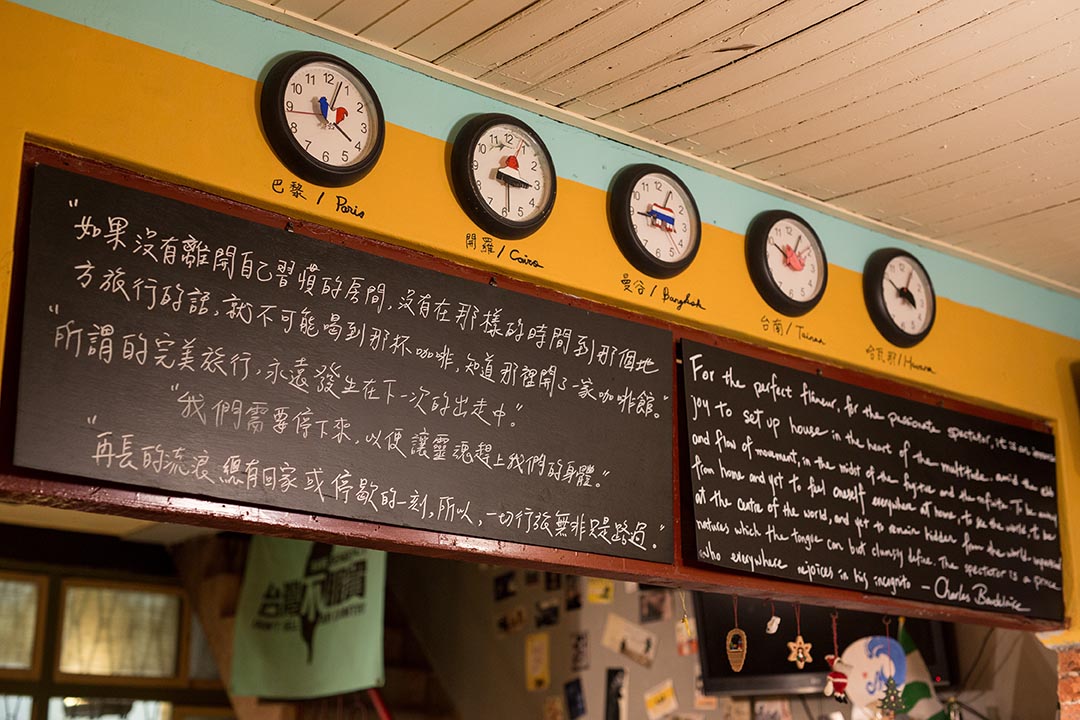 巴黎 / Paris
開羅 / Cairo
曼谷 / Bangkok
台南 / Tainan
哈瓦那 / Havana
"如果沒有離開自己習慣的房間,沒有在那樣的時間到那個地
方旅行的話,就不可能喝到那杯咖啡,知道那裡開了一家咖啡館。"
"所謂的完美旅行,永遠發生在下一次的出走中。"
"我們需要停下來,以便讓靈魂趕上我們的身體。"
"再長的流浪總有回家或停歇的一刻,所以,一切行旅無非只是路過。"
For the perfect flaneur, for the passionate spectator, it is an immense
joy to set up house in the heart of the multitude, amid the ebb
and flow of movement, in the midst of the fugitive and the infinite. To be away
from home and yet to feel oneself everywhere at home; to see the world, to be
at the centre of the world, and yet to remain hidden from the world-impartial
natures which the tongue can but clumsily define. The spectator is a prince
who everywhere rejoices in his incognito - Charles Baudelaire
台灣不